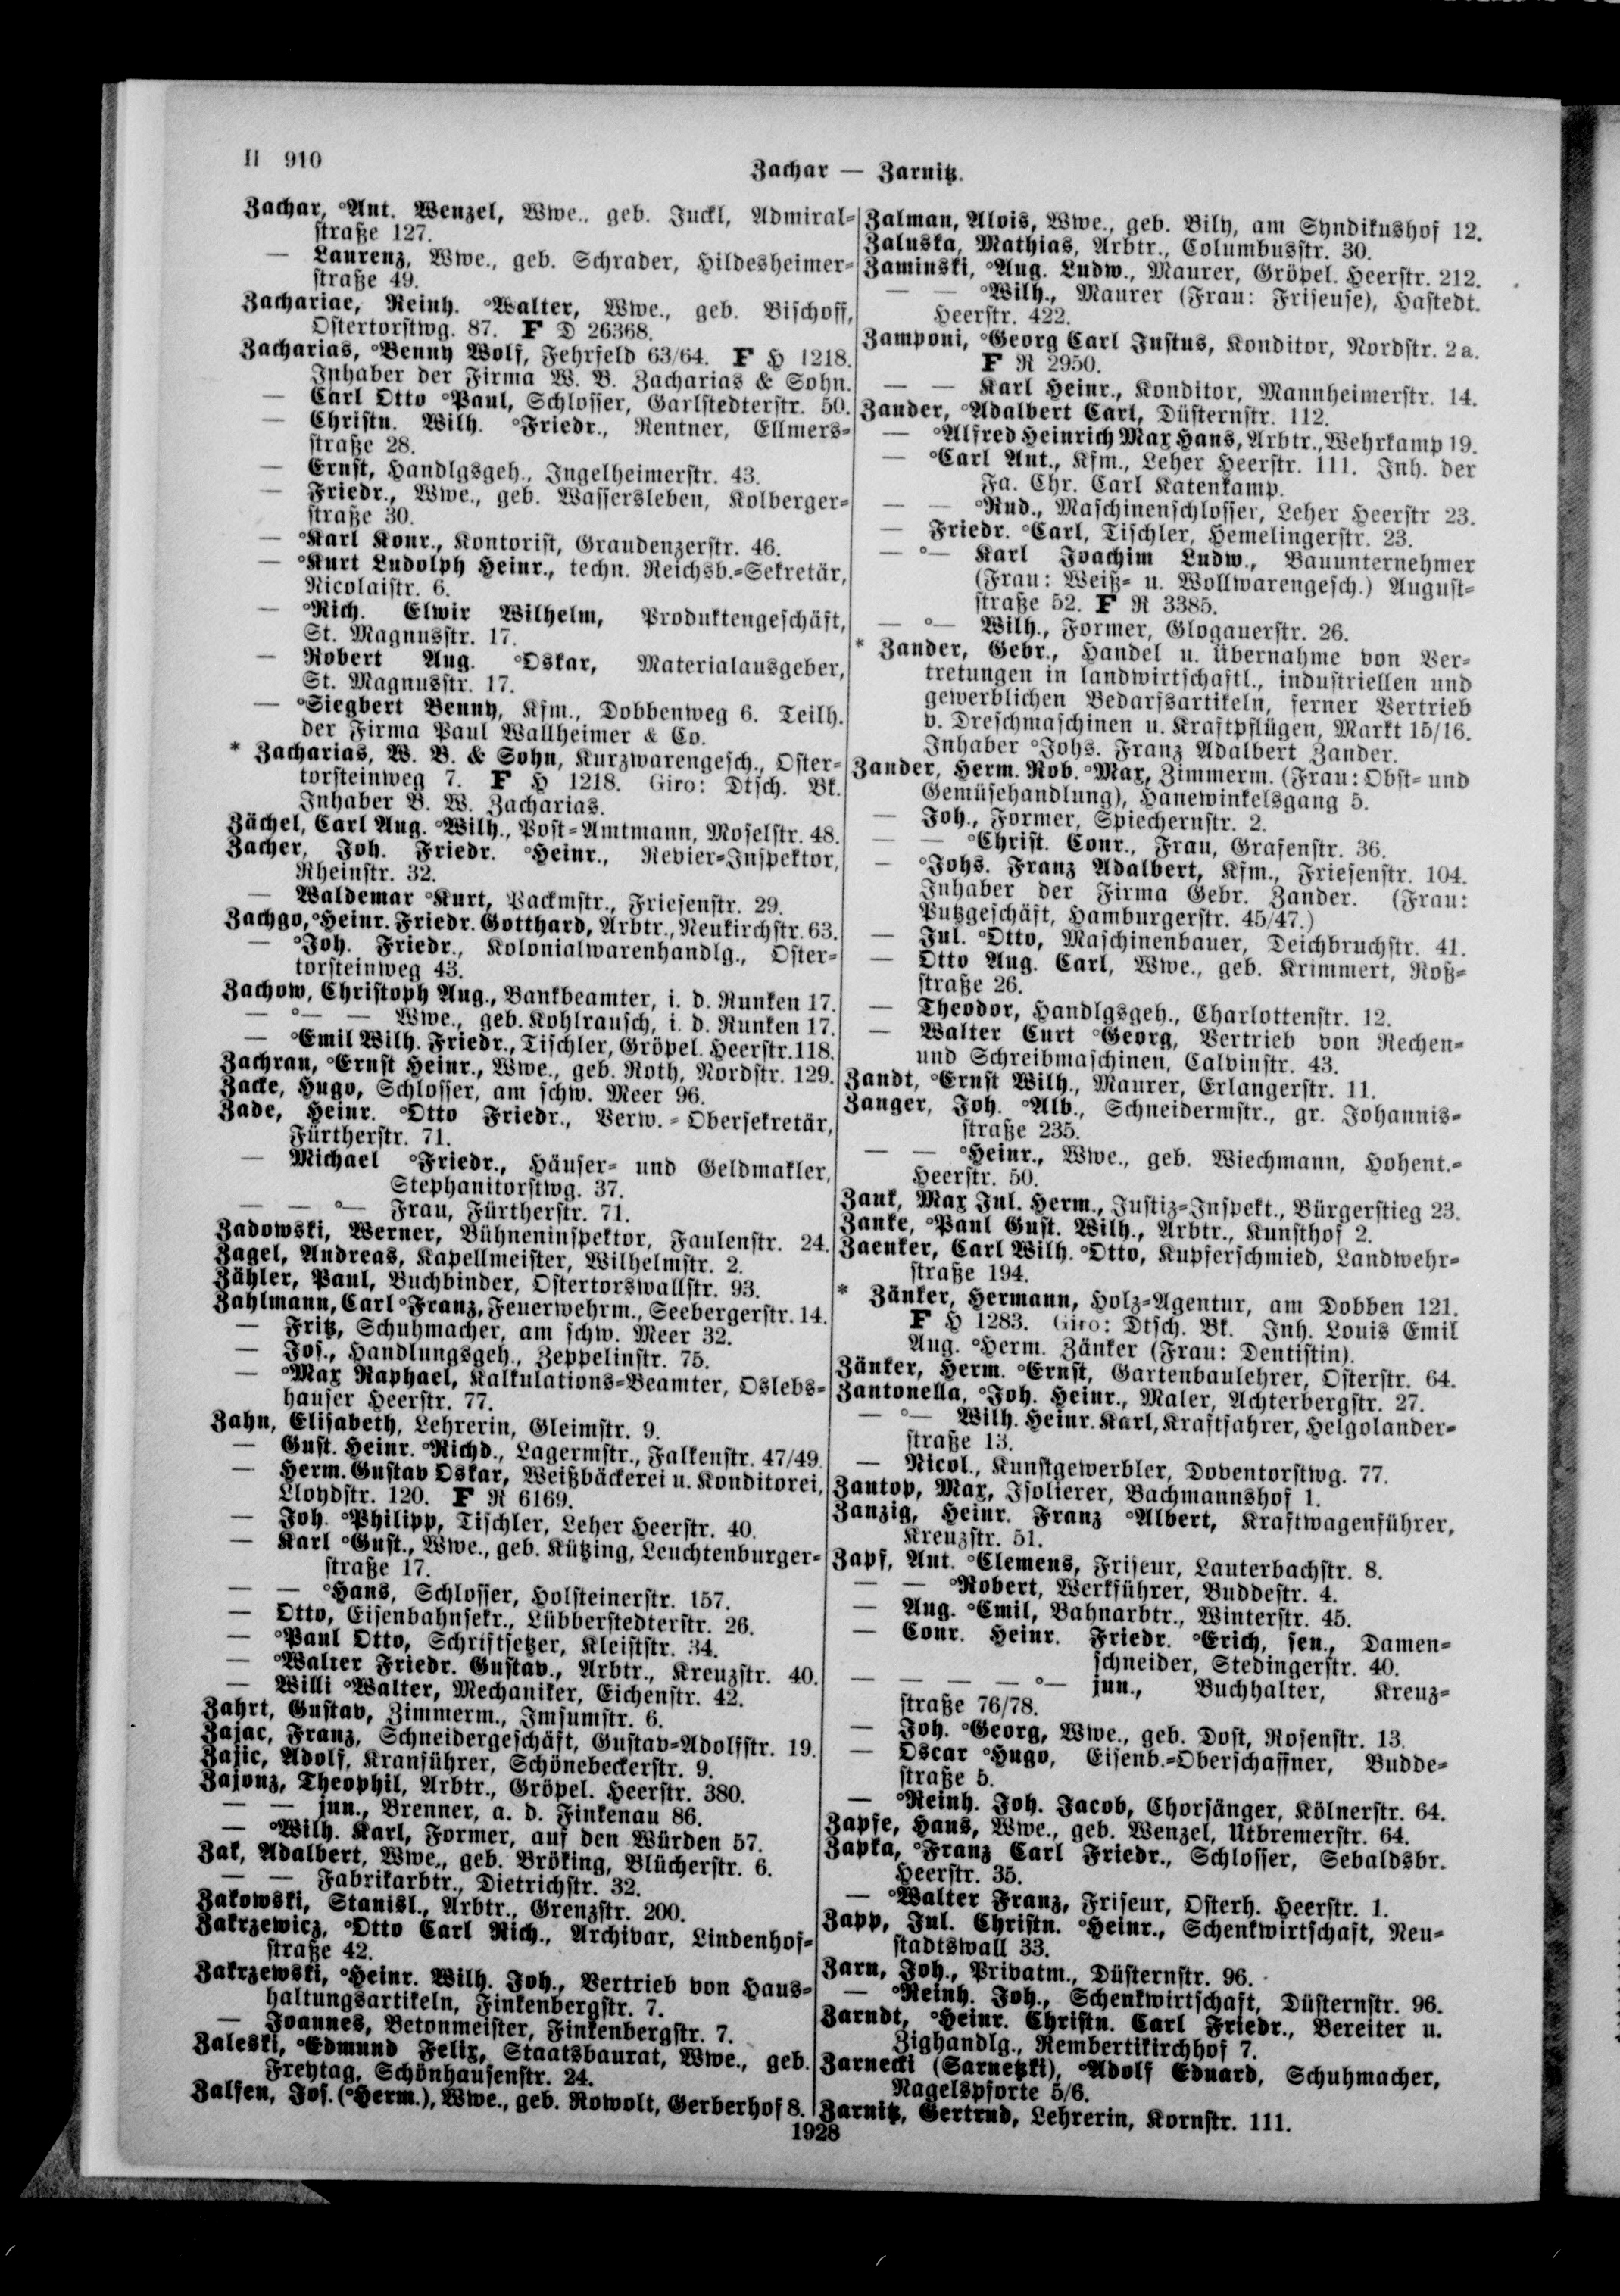 II 910
Zachar — Zarnitz.
Zachar, °Ant. Wenzel, Wwe., geb. Juckl, Admiral-
straße 127.
— Laurenz, Wwe., geb. Schrader, Hildesheimer-
straße 49.
Zachariae, Reinh. °Walter, Wwe., geb. Bischoff,
Ostertorstwg. 87. F D 26368.
Zacharias, °Benny Wolf, Fehrfeld 63/64. F H 1218.
Inhaber der Firma W. B. Zacharias & Sohn.
— Carl Otto °Paul, Schlosser, Garlstedterstr. 50.
— Christn. Wilh. °Friedr., Rentner, Ellmers-
straße 28.
— Ernst, Handlgsgeh., Ingelheimerstr. 43.
— Friedr., Wwe., geb. Wassersleben, Kolberger-
straße 30.
— °Karl Konr., Kontorist, Graudenzerstr. 46.
— °Kurt Ludolph Heinr., techn. Reichsb.-Sekretär,
Nicolaistr. 6.
— °Rich. Elwir Wilhelm, Produktengeschäft,
St. Magnusstr. 17.
— Robert Aug. °Oskar, Materialausgeber,
St. Magnusstr. 17.
— °Siegbert Benny, Kfm., Dobbenweg 6. Teilh.
der Firma Paul Wallheimer & Co.
* Zacharias, W. B. & Sohn, Kurzwarengesch., Oster-
torsteinweg 7. F H 1218. Giro: Dtsch. Bk.
Inhaber B. W. Zacharias.
Zächel, Carl Aug. °Wilh., Post-Amtmann, Moselstr. 48.
Zacher, Joh. Friedr. °Heinr., Revier-Inspektor,
Rheinstr. 32.
— Waldemar °Kurt, Packmstr., Friesenstr. 29.
Zachgo, °Heinr. Friedr. Gotthard, Arbtr., Neukirchstr. 63.
— °Joh. Friedr., Kolonialwarenhandlg., Oster-
torsteinweg 43.
Zachow, Christoph Aug., Bankbeamter, i. d. Runken 17.
— °— — Wwe., geb. Kohlrausch, i. d. Runken 17.
— °Emil Wilh. Friedr., Tischler, Gröpel. Heerstr. 118.
Zachrau, °Ernst Heinr., Wwe., geb. Roth, Nordstr. 129.
Zacke, Hugo, Schlosser, am schw. Meer 96.
Zade, Heinr. °Otto Friedr., Verw.-Obersekretär,
Fürtherstr. 71.
— Michael °Friedr., Häuser- und Geldmakler,
Stephanitorstwg. 37.
— — °— Frau, Fürtherstr. 71.
Zadowski, Werner, Bühneninspektor, Faulenstr. 24.
Zagel, Andreas, Kapellmeister, Wilhelmstr. 2.
Zähler, Paul, Buchbinder, Ostertorswallstr. 93.
Zahlmann, Carl °Franz, Feuerwehrm., Seebergerstr. 14.
— Fritz, Schuhmacher, am schw. Meer 32.
— Jos., Handlungsgeh., Zeppelinstr. 75.
— °Max Raphael, Kalkulations-Beamter, Oslebs-
hauser Heerstr. 77.
Zahn, Elisabeth, Lehrerin, Gleimstr. 9.
— Gust. Heinr. °Richd., Lagermstr., Falkenstr. 47/49.
— Herm. Gustav Oskar, Weißbäckerei u. Konditorei,
Lloydstr. 120. F R 6169.
— Joh. °Philipp, Tischler, Leher Heerstr. 40.
— Karl °Gust., Wwe., geb. Kützing, Leuchtenburger-
straße 17.
— — °Hans, Schlosser, Holsteinerstr. 157.
— Otto, Eisenbahnsekr., Lübberstedterstr. 26.
— °Paul Otto, Schriftsetzer, Kleiststr. 34.
— °Walter Friedr. Gustav., Arbtr., Kreuzstr. 40.
— Willi °Walter, Mechaniker, Eichenstr. 42.
Zahrt, Gustav, Zimmerm., Imsumstr. 6.
Zajac, Franz, Schneidergeschäft, Gustav-Adolfstr. 19.
Zajic, Adolf, Kranführer, Schönebeckerstr. 9.
Zajonz, Theophil, Arbtr., Gröpel. Heerstr. 380.
— — jun., Brenner, a. d. Finkenau 86.
— °Wilh. Karl, Former, auf den Würden 57.
Zak, Adalbert, Wwe., geb. Bröking, Blücherstr. 6.
— — Fabrikarbtr., Dietrichstr. 32.
Zakowski, Stanisl., Arbtr., Grenzstr. 200.
Zakrzewicz, °Otto Carl Rich., Archivar, Lindenhof-
straße 42.
Zakrzewski, °Heinr. Wilh. Joh., Vertrieb von Haus-
haltungsartikeln, Finkenbergstr. 7.
— Joannes, Betonmeister, Finkenbergstr. 7.
Zaleski, °Edmund Felix, Staatsbaurat, Wwe., geb.
Freytag, Schönhausenstr. 24.
Zalfen, Jos. (°Herm.), Wwe., geb. Rowolt, Gerberhof 8.
Zalman, Alois, Wwe., geb. Bily, am Syndikushof 12.
Zaluska, Mathias, Arbtr., Columbusstr. 30.
Zaminski, °Aug. Ludw., Maurer, Gröpel. Heerstr. 212.
— — °Wilh., Maurer (Frau: Friseuse), Hastedt.
Heerstr. 422.
Zamponi, °Georg Carl Justus, Konditor, Nordstr. 2a.
F R 2950.
— — Karl Heinr., Konditor, Mannheimerstr. 14.
Zander, °Adalbert Carl, Düsternstr. 112.
— °Alfred Heinrich Max Hans, Arbtr., Wehrkamp 19.
— °Carl Ant., Kfm., Leher Heerstr. 111. Inh. der
Fa. Chr. Carl Katenkamp.
— — °Rud., Maschinenschlosser, Leher Heerstr 23.
— Friedr. °Carl, Tischler, Hemelingerstr. 23.
— °— Karl Joachim Ludw., Bauunternehmer
(Frau: Weiß- u. Wollwarengesch.) August-
straße 52. F R 3385.
— °— Wilh., Former, Glogauerstr. 26.
* Zander, Gebr., Handel u. Übernahme von Ver-
tretungen in landwirtschaftl., industriellen und
gewerblichen Bedarfsartikeln, ferner Vertrieb
v. Dreschmaschinen u. Kraftpflügen, Markt 15/16.
Inhaber °Johs. Franz Adalbert Zander.
Zander, Herm. Rob. °Max, Zimmerm. (Frau: Obst- und
Gemüsehandlung), Hanewinkelsgang 5.
— Joh., Former, Spiechernstr. 2.
— — °Christ. Conr., Frau, Grafenstr. 36.
— °Johs. Franz Adalbert, Kfm., Friesenstr. 104.
Inhaber der Firma Gebr. Zander. (Frau:
Putzgeschäft, Hamburgerstr. 45/47.)
— Jul. °Otto, Maschinenbauer, Deichbruchstr. 41.
— Otto Aug. Carl, Wwe., geb. Krimmert, Roß-
straße 26.
— Theodor, Handlgsgeh., Charlottenstr. 12.
— Walter Curt °Georg, Vertrieb von Rechen-
und Schreibmaschinen, Calvinstr. 43.
Zandt, °Ernst Wilh., Maurer, Erlangerstr. 11.
Zanger, Joh. °Alb., Schneidermstr., gr. Johannis-
straße 235.
— — °Heinr., Wwe., geb. Wiechmann, Hohent.-
Heerstr. 50.
Zank, Max Jul. Herm., Justiz-Inspekt., Bürgerstieg 23.
Zanke, °Paul Gust. Wilh., Arbtr., Kunsthof 2.
Zaenker, Carl Wilh. °Otto, Kupferschmied, Landwehr-
straße 194.
* Zänker, Hermann, Holz-Agentur, am Dobben 121.
F H 1283. Giro: Dtsch. Bk. Inh. Louis Emil
Aug. °Herm. Zänker (Frau: Dentistin).
Zänker, Herm. °Ernst, Gartenbaulehrer, Osterstr. 64.
Zantonella, °Joh. Heinr., Maler, Achterbergstr. 27.
— °— Wilh. Heinr. Karl, Kraftfahrer, Helgolander-
straße 13.
— Nicol., Kunstgewerbler, Doventorstwg. 77.
Zantop, Max, Isolierer, Bachmannshof 1.
Zanzig, Heinr. Franz °Albert, Kraftwagenführer,
Kreuzstr. 51.
Zapf, Ant. °Clemens, Friseur, Lauterbachstr. 8.
— — °Robert, Werkführer, Buddestr. 4.
— Aug. °Emil, Bahnarbtr., Winterstr. 45.
— Conr. Heinr. Friedr. °Erich, sen., Damen-
schneider, Stedingerstr. 40.
— — — — °— jun., Buchhalter, Kreuz-
straße 76/78.
— Joh. °Georg, Wwe., geb. Dost, Rosenstr. 13.
— Oscar °Hugo, Eisenb.-Oberschaffner, Budde-
straße 5.
— °Reinh. Joh. Jacob, Chorsänger, Kölnerstr. 64.
Zapfe, Hans, Wwe., geb. Wenzel, Utbremerstr. 64.
Zapka, °Franz Carl Friedr., Schlosser, Sebaldsbr.
Heerstr. 35.
— °Walter Franz, Friseur, Osterh. Heerstr. 1.
Zapp, Jul. Christn. °Heinr., Schenkwirtschaft, Neu-
stadtswall 33.
Zarn, Joh., Privatm., Düsternstr. 96.
— °Reinh. Joh., Schenkwirtschaft, Düsternstr. 96.
Zarndt, °Heinr. Christn. Carl Friedr., Bereiter u.
Zighandlg., Rembertikirchhof 7.
Zarnecki (Sarnetzki), °Adolf Eduard, Schuhmacher,
Nagelspforte 5/6.
Zarnitz, Gertrud, Lehrerin, Kornstr. 111.
1928